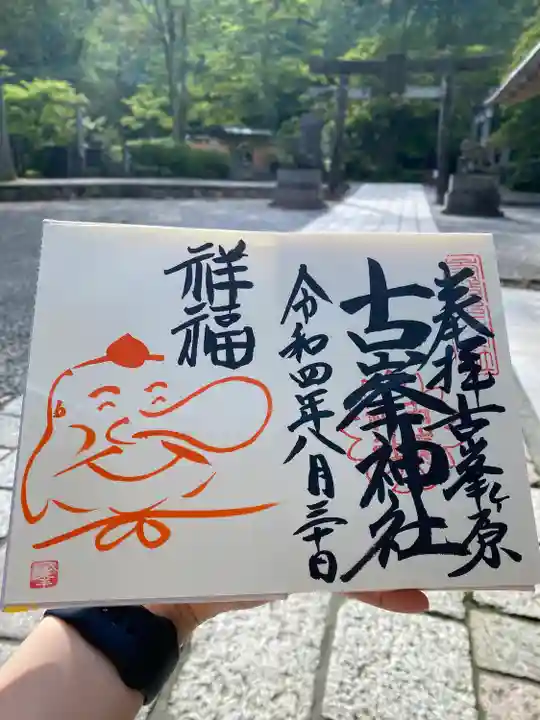 奉拝 古峯ヶ原
古峯神社
令和四年八月三十日
祥福